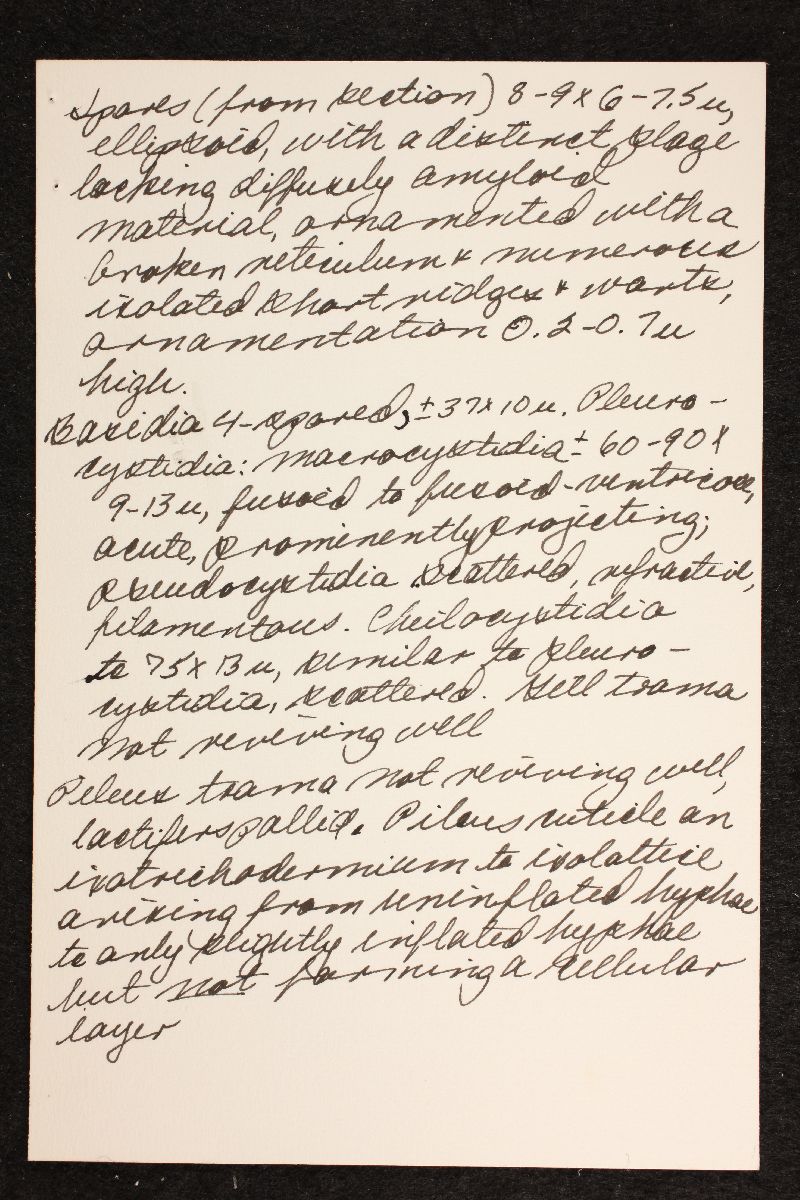 Spores (from section) 8-9 x 6-7.5 u,
ellipsoid, with a distinct plage
lacking diffusely amyloid
material, ornamented with a
broken reticulum & numerous
isolated short ridges & warts,
ornamentation 0.2-0.7 u
high.
Basidia 4-spored, ±37 x 10 u. Pleuro-
cystidia: macrocystidia ± 60-90 x
9-13 u, fusoid to fusoid-ventricose,
acute, prominently projecting;
pseudocystidia scattered, refractive,
filamentous. Cheilocystidia
to 75 x 13 u, similar to pleuro-
cystidia, scattered. Gill trama
not reviving well
Pileus trama not reviving well,
lactifers pallid. Pileus cuticle an
ixotrichodermium to ixolattice
arising from uninflated hyphae
to only slightly inflated hyphae
but not forming a cellular
layer